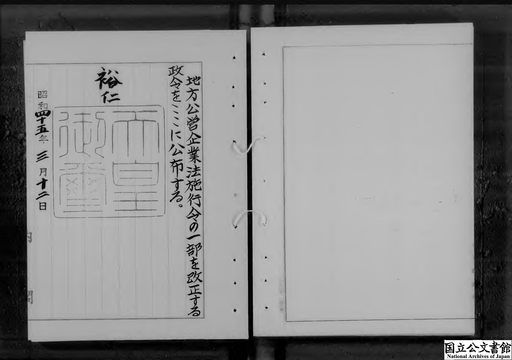 地方公営企業法施行令の一部を改正する
政令をここに公布する。
裕仁
天皇
御璽
昭和四十五年三月十二日
国立公文書館
National Archives of Japan